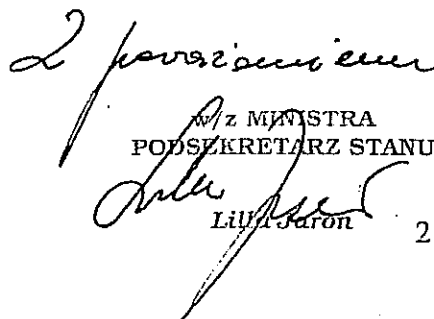 Z poważaniem
w/z MINISTRA
PODSEKRETARZ STANU
Lilla Jaroń
2